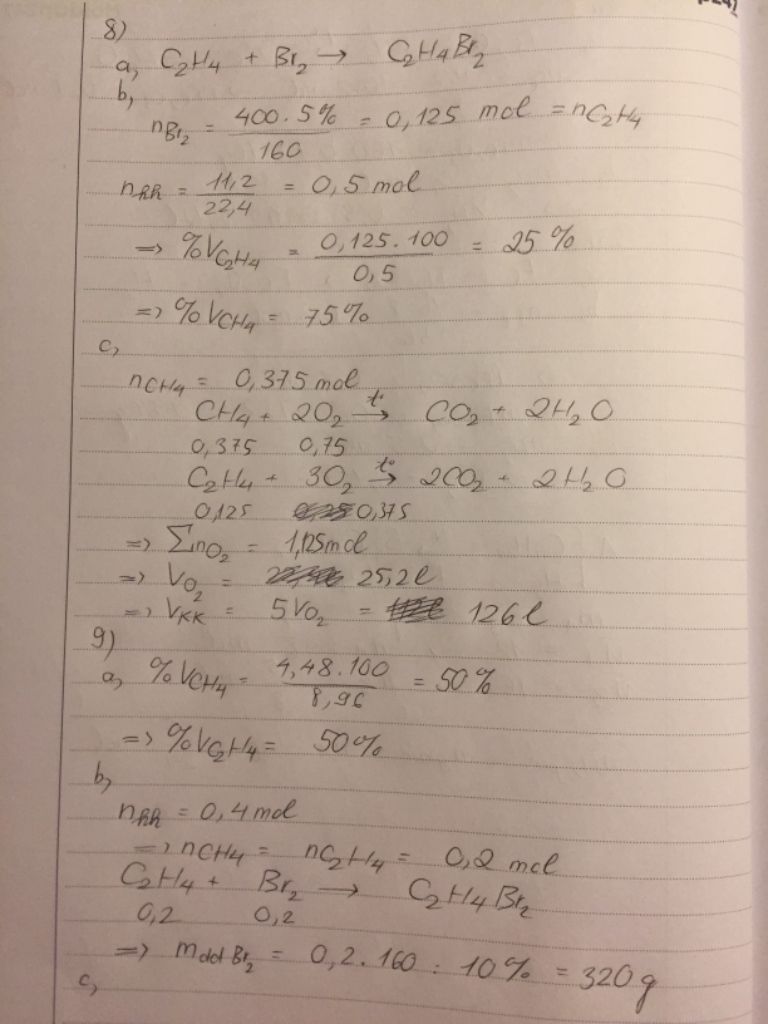 8)
a, C₂H₄ + Br₂ → C₂H₄Br₂
b,
nBr₂ = 400.5% / 160 = 0,125 mol = nC₂H₄
nhh = 11,2 / 22,4 = 0,5 mol
=> %VC₂H₄ = 0,125.100 / 0,5 = 25%
=> %VCH₄ = 75%
c,
nCH₄ = 0,375 mol
CH₄ + 2O₂ →(t°) CO₂ + 2H₂O
0,375 0,75
C₂H₄ + 3O₂ →(t°) 2CO₂ + 2H₂O
0,125 0,375
=> ΣnO₂ = 1,125mol
=> VO₂ = 25,2l
=> VKK = 5VO₂ = 126l
9)
a, %VCH₄ = 4,48.100 / 8,96 = 50%
=> %VC₂H₄ = 50%
b,
nhh = 0,4 mol
=> nCH₄ = nC₂H₄ = 0,2 mol
C₂H₄ + Br₂ → C₂H₄Br₂
0,2 0,2
=> mddBr₂ = 0,2.160 : 10% = 320g
c,